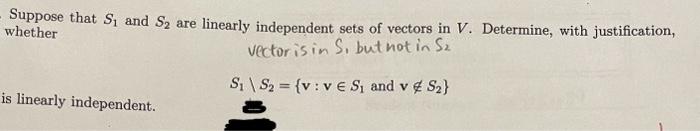 Suppose that S₁ and S₂ are linearly independent sets of vectors in V. Determine, with justification,
whether
vector is in S₁ but not in S₂
S₁ \ S₂ = {v : v ∈ S₁ and v ∉ S₂}
is linearly independent.